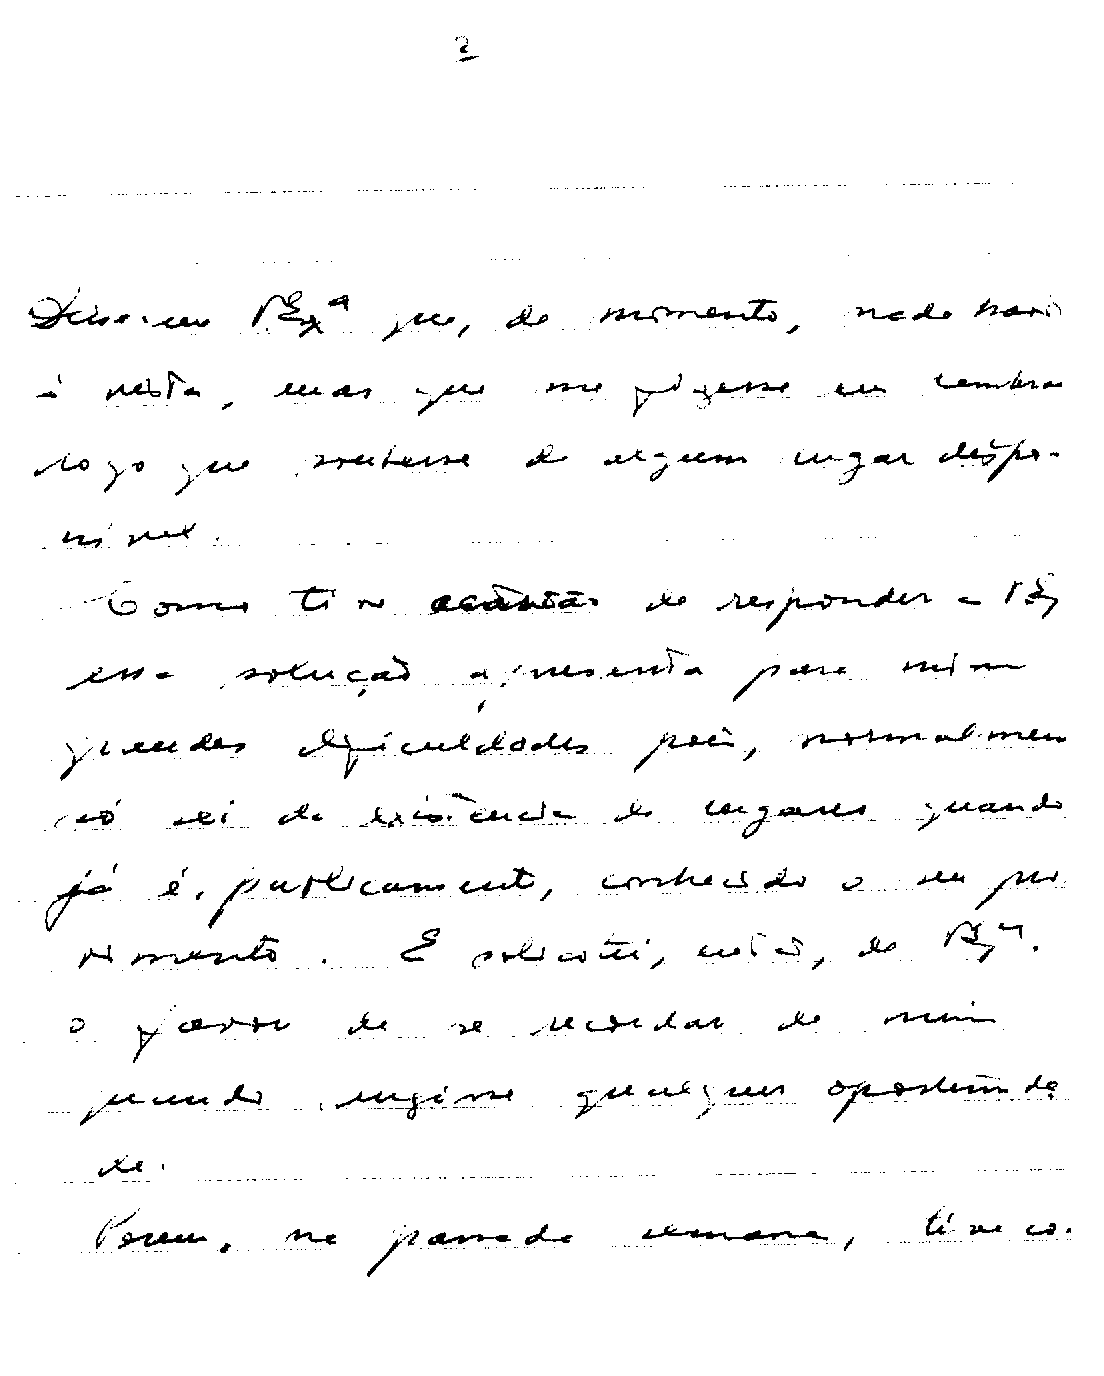 2
Disse-me V.Exª que, de momento, nada havi
à vista, mas que me fizesse eu lembra
logo que soubesse de algum lugar dispo-
nível.
Como tive ocasião de responder a V.Ex
essa solução apresenta para mim
grandes dificuldades pois, normalmen
só sei da existência de lugares quando
já é, publicamente, conhecido o seu pro
vimento. E solicitei, então, de V.Exª.
o favor de se recordar de mim
quando surgisse qualquer oportunida
de.
Porém, na passada semana, tive co-